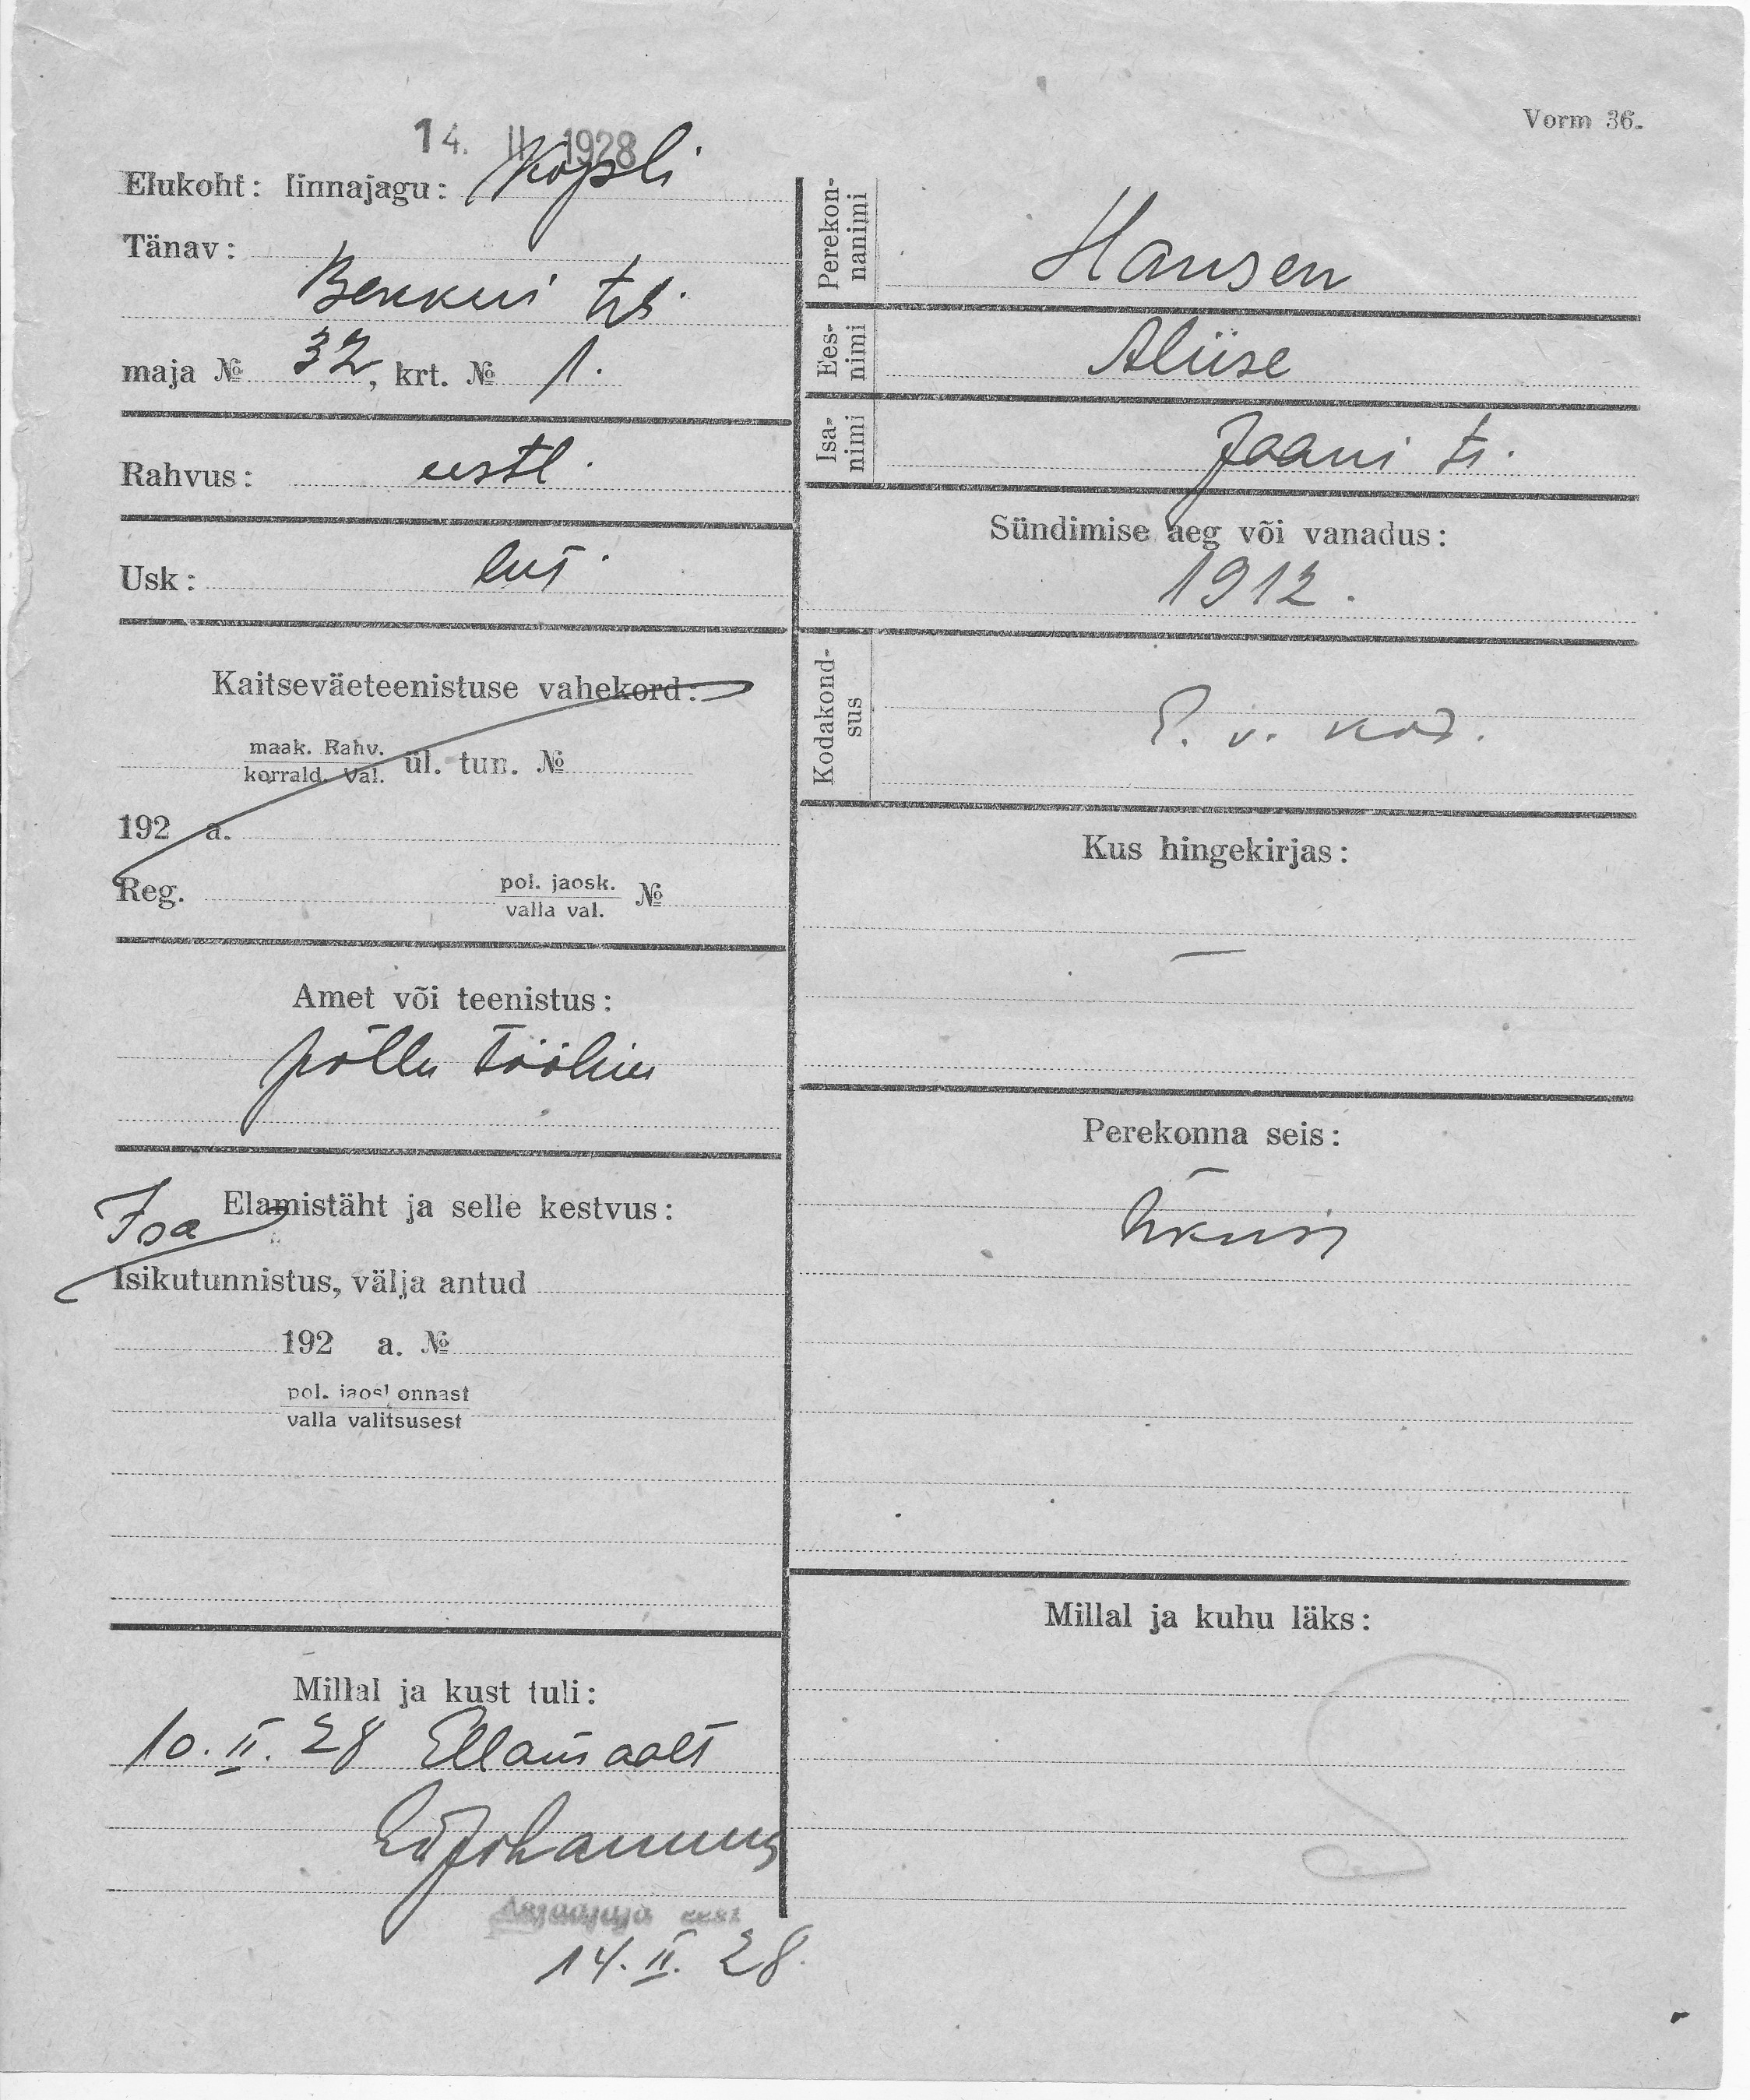 Vorm 36.
14. II 1928
Elukoht: linnajagu: Kopli
Tänav:
Bekkeri
maja № 32, krt. № 1.
Rahvus: eestl.
Usk: lut.
Kaitseväeteenistuse vahekord:
maak. Rahv.
korrald. Val. ül. tun. №
192 a.
Reg. pol. jaosk. №
valla val.
Amet või teenistus:
põllu tööline
Isa Elamistäht ja selle kestvus:
Isikutunnistus, välja antud
192 a. №
pol. jaoskonnast
valla valitsusest
Millal ja kust tuli:
10. II. 28 Ellamaalt
Asjaajaja eest
14. II. 28.
Perekon-
nanimi Hansen
Ees-
nimi Aliise
Isa-
nimi Jaani t.
Sündimise aeg või vanadus:
1912.
Kodakond-
sus E. v. kod.
Kus hingekirjas:
—
Perekonna seis:
Üksik
Millal ja kuhu läks: